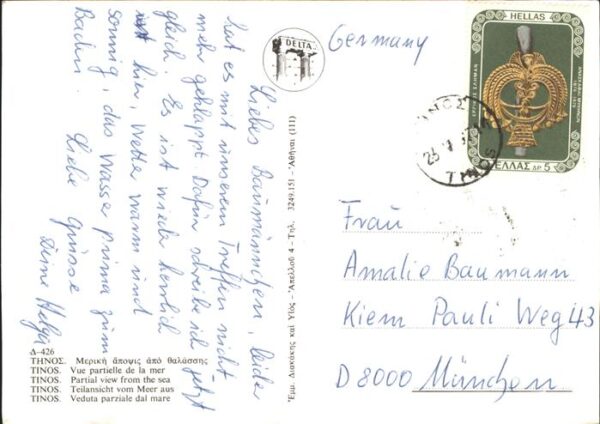 Liebes Baumännchen, leider
hat es mit unserem Treffen nicht
mehr geklappt. Dafür schreibe ich jetzt
gleich. Es ist wieder herrlich
hier, Wetter warm und
sonnig, das Wasser prima zum
Baden.
Liebe Grüsse
Deine Helga
Δ-426
ΤΗΝΟΣ. Μερική ἄποψις ἀπό θαλάσσης
TINOS. Vue partielle de la mer
TINOS. Partial view from the sea
TINOS. Teilansicht vom Meer aus
TINOS. Veduta parziale dal mare
DELTA
Ἐμμ. Διακάκης καί Υἱός - Ἀπελλοῦ 4 - Τηλ. 3249.151 - Ἀθῆναι (111)
Germany
HELLAS
ΕΛΛΑΣ ΔΡ. 5
ΤΗΝΟΣ
TINOS
Frau
Amalie Baumann
Kiem Pauli Weg 43
D 8000 München